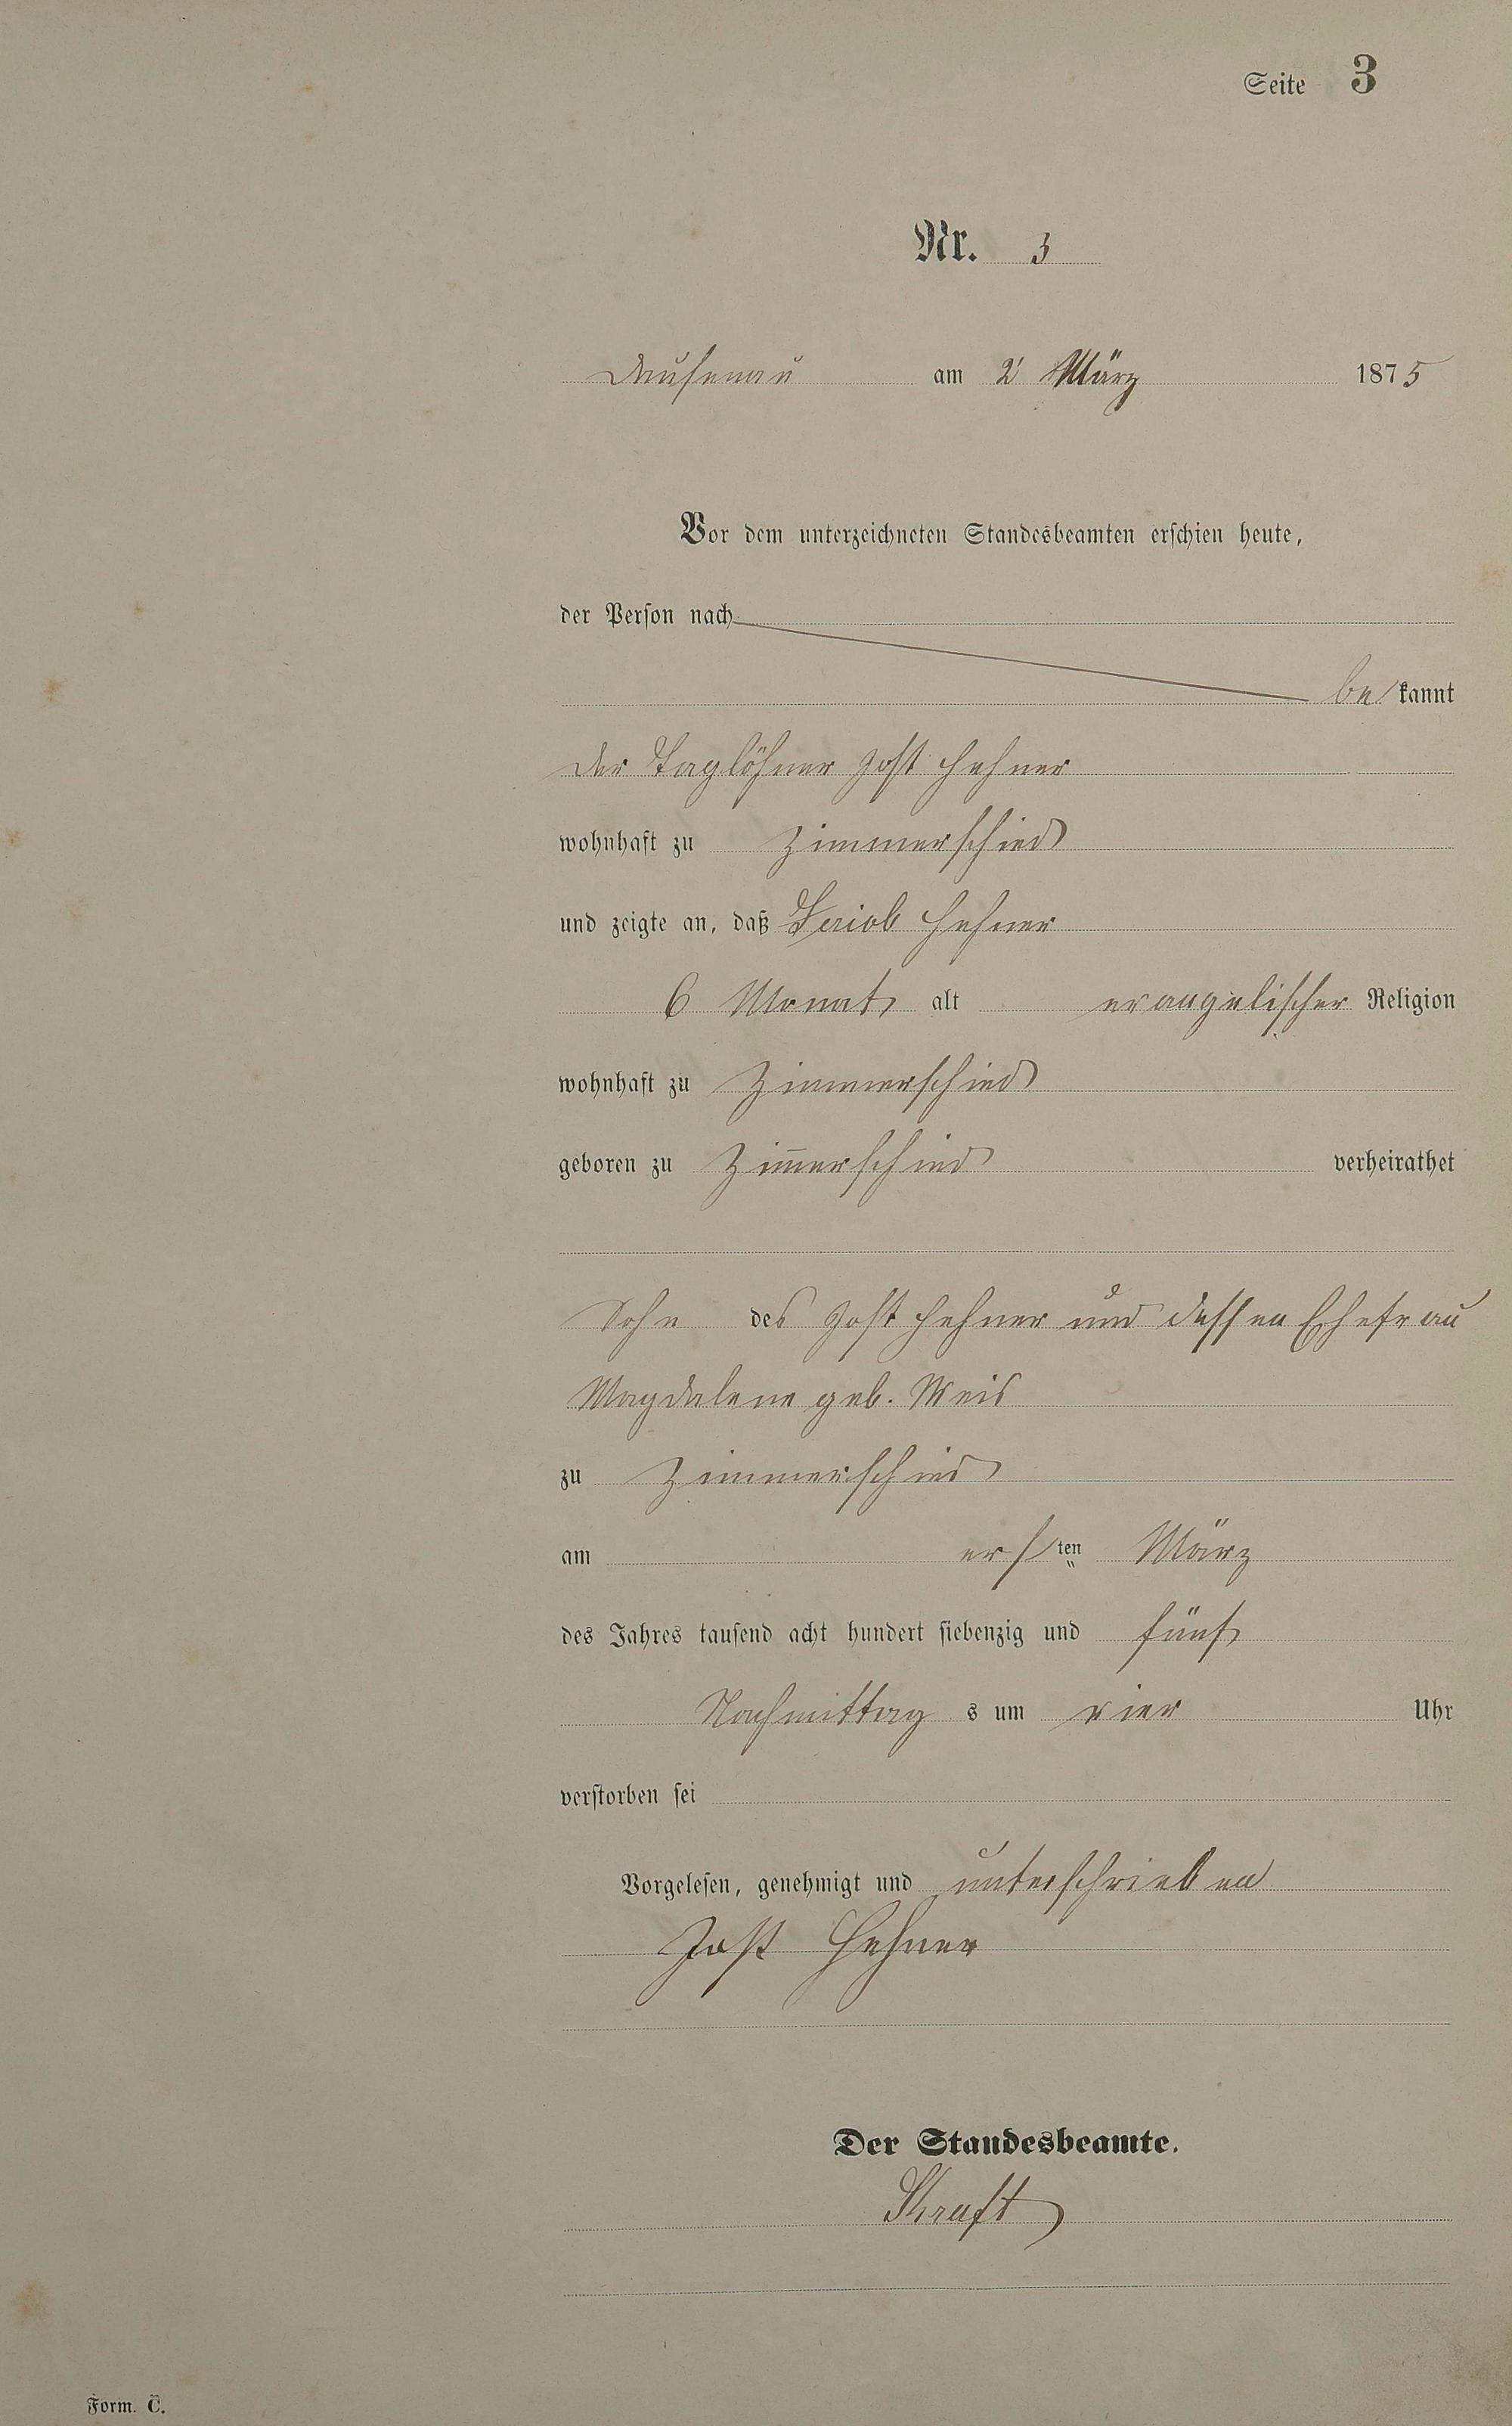 Seite 3
Nr. 3
Dausenau am 2 März 1875
Vor dem unterzeichneten Standesbeamten erschien heute,
der Person nach
bekannt
der Taglöhner Jost Hehner
wohnhaft zu Zimmerschied
und zeigte an, daß Hehner
6 Monat alt evangelischer Religion
wohnhaft zu Zimmerschied
geboren zu Zim̄erschied verheirathet
Sohn des Jost Hehner und dessen Ehefrau
Magdalene geb. Weis
zu Zimmerschied
am ersten März
des Jahres tausend acht hundert siebenzig und fünf
Nachmittags um vier Uhr
verstorben sei
Vorgelesen, genehmigt und unterschrieben
Jost Hehner
Der Standesbeamte.
Kraft
Form. C.